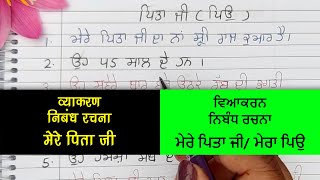 ਪਿਤਾ ਜੀ ( ਪਿਓ )
1. ਮੇਰੇ ਪਿਤਾ ਜੀ ਦਾ ਨਾਂ ਸ੍ਰੀ ਰਾਜ ਕੁਮਾਰ ਹੈ।
2. ਉਹ 45 ਸਾਲ ਦੇ ਹਨ ।
व्याकरण
निबंध रचना
मेरे पिता जी
ਵਿਆਕਰਨ
ਨਿਬੰਧ ਰਚਨਾ
ਮੇਰੇ ਪਿਤਾ ਜੀ/ ਮੇਰਾ ਪਿਉ
5.